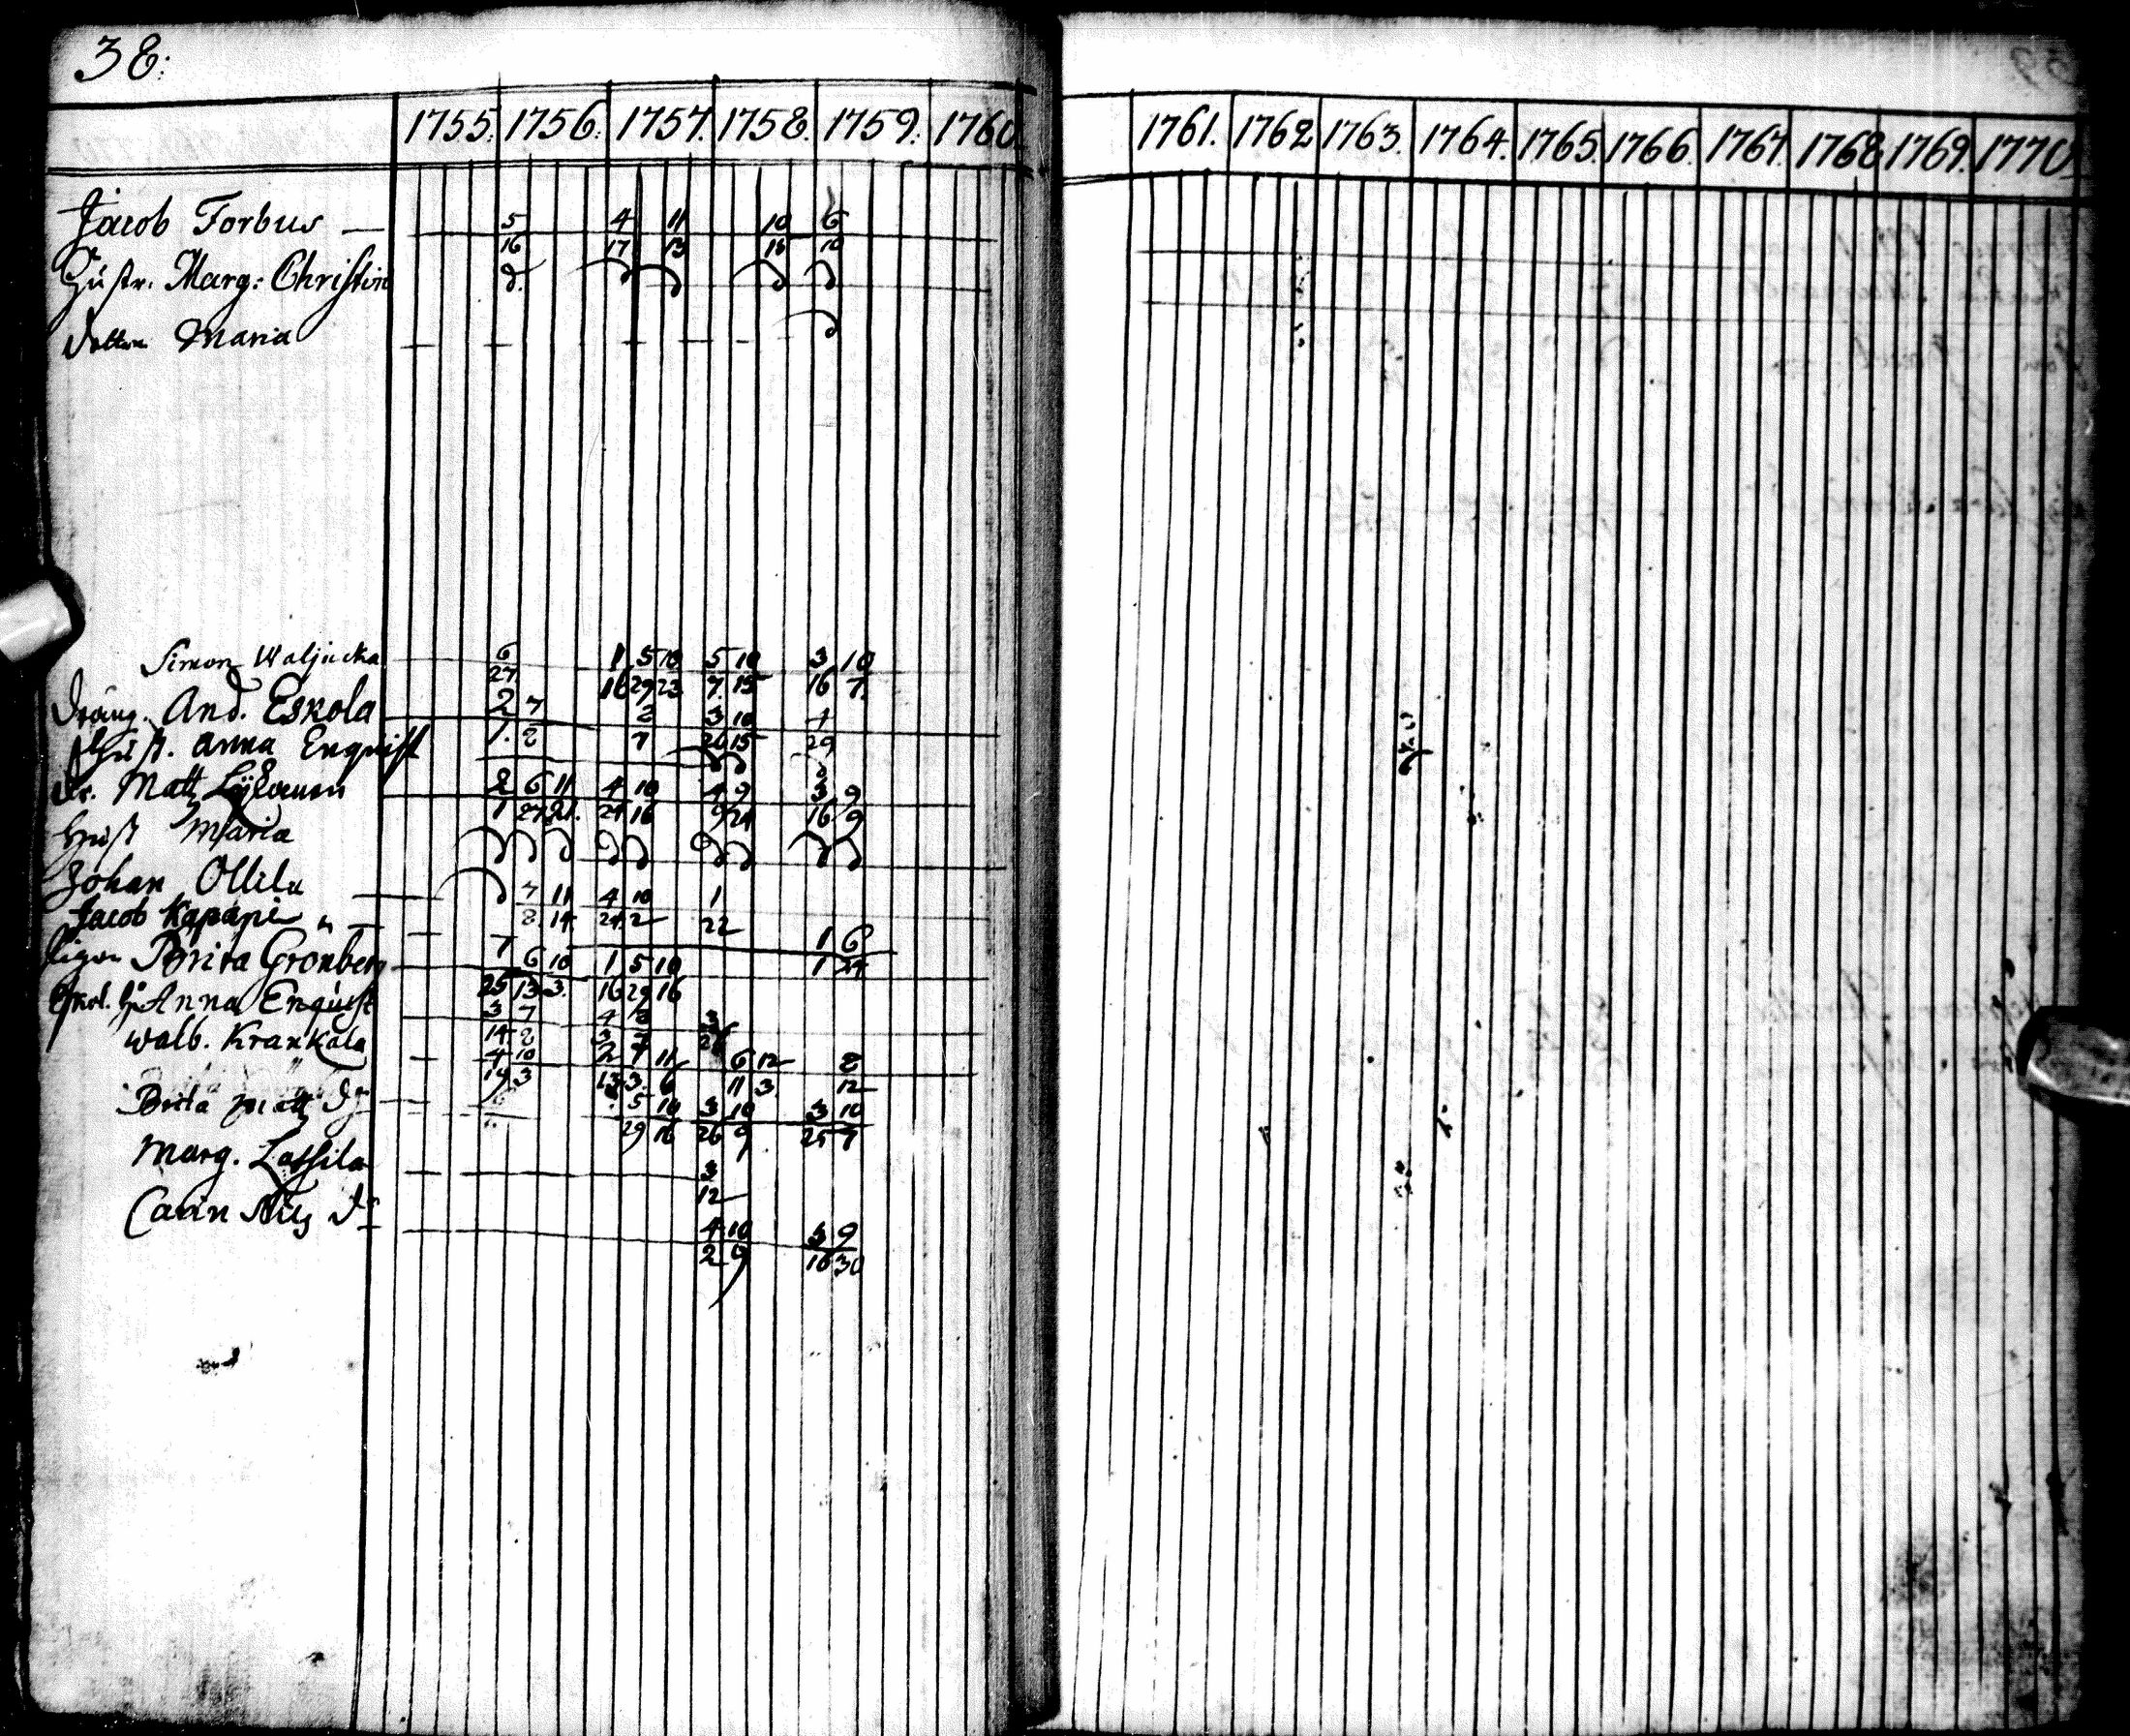 38:
1755. 1756. 1757. 1758. 1759. 1760. 1761. 1762 1763. 1764. 1765. 1766. 1767. 1768 1769. 1770
Jacob Forbus — 5 4 11 10 6
16 17 13 18 10
Hustr. Marg: Christin
dottren Maria
Simon Waljucka 6 1 5 10 5 10 3 10
27 16 29 23 7. 15 16 7.
Dräng. And. Eskola 2 7 2 3 10 4
1. 8 7 26 15 29
Hust. Anna Enqvist
dr. Matt 2 6 11 4 10 4 9 3 9
1 27 21. 24 16 9 24 16 9
Hust Maria
Johan Ollila 7 11 4 10 1
8. 14. 24. 2 22
Jacob Kapapi 1 6
1 24
Pigan Brita Gronberg 7 6 10 1 5 10
25 13 3. 16 29 16
Eskol. H. Anna Enquist 3 7 4 2 3
14. 8 3 7
Walb. Krankala 4 10 2 7 11 6 12 8
19 3 13 3. 6 11 3 12
Brita Matts Dr 5 10 3 10 3 10
29 16 26 9 25 7
Marg. Lassila 3
12
Carin Nils Dr 4 10 3 9
2 9 16 30